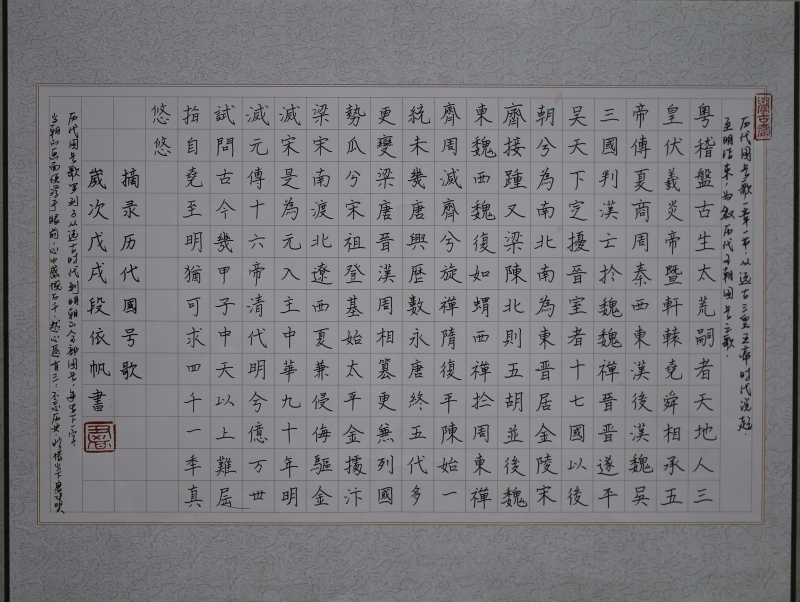 历代国号歌一章一节，从远古三皇五帝时代说起，
至明结束，为叙历代王朝国号之歌。
粤稽盤古生太荒嗣者天地人三
皇伏羲炎帝暨軒轅堯舜相承五
帝傳夏商周秦西東漢後漢魏吳
三國判漢亡於魏魏禪晉晉遂平
吳天下定擾晉室者十七國以後
朝兮為南北南為東晉居金陵宋
齊接踵又梁陳北則五胡並後魏
東魏西魏復如蝟西禪於周東禪
齊周滅齊兮旋禪隋復平陳始一
統未幾唐興歷數永唐終五代多
更變梁唐晉漢周相篡更兼列國
勢瓜兮宋祖登基始太平金擾汴
梁宋南渡北遼西夏兼侵侮驅金
滅宋是為元入主中華九十年明
滅元傳十六帝清代明兮億万世
試問古今幾甲子中天以上難屈
指自堯至明猶可求四千一季真
悠悠
摘录历代國号歌
歲次戊戌段依帆書
历代国号歌写到了从远古时代到明朝的全部国号，每写下一字
当朝的画面便浮于眼前，心中感慨万千